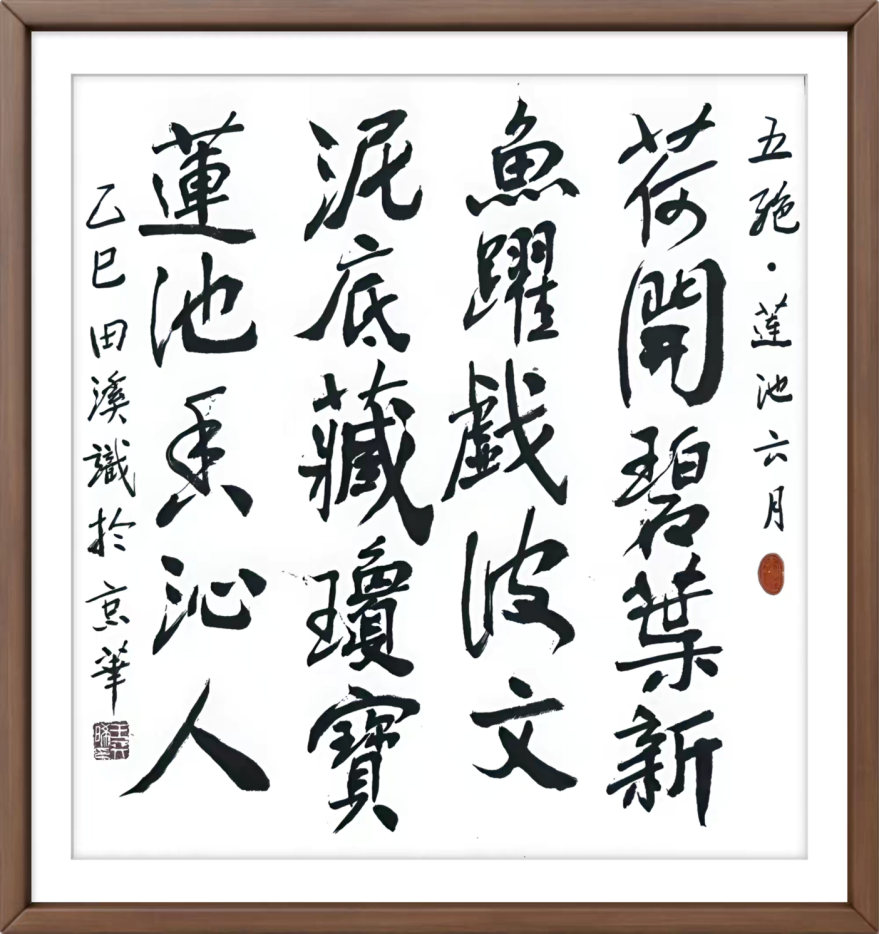 五绝·莲池六月
荷開碧葉新
魚躍戯波文
泥底藏瓊寶
蓮池香沁人
乙巳田溪識於京華